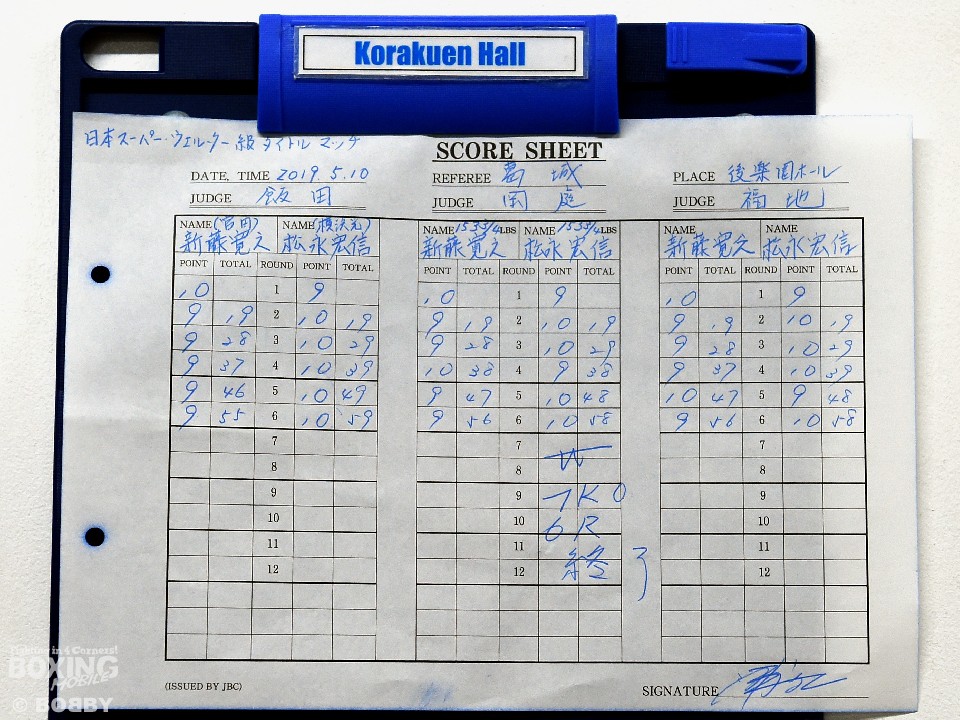 Korakuen Hall
日本スーパーウェルター級タイトルマッチ
SCORE SHEET
DATE, TIME 2019.5.10 REFEREE 葛城 PLACE 後楽園ホール
JUDGE 飯田 JUDGE JUDGE 福地
NAME NAME NAME 153 3/4 LBS NAME 153 3/4 LBS NAME NAME
新藤寛之 松永宏信 新藤寛之 松永宏信 新藤寛之 松永宏信
POINT TOTAL ROUND POINT TOTAL POINT TOTAL ROUND POINT TOTAL POINT TOTAL ROUND POINT TOTAL
10 1 9 10 1 9 10 1 9
9 19 2 10 19 9 19 2 10 19 9 19 2 10 19
9 28 3 10 29 9 28 3 10 29 9 28 3 10 29
9 37 4 10 39 10 38 4 9 38 9 37 4 10 39
9 46 5 10 49 9 47 5 10 48 10 47 5 9 48
9 55 6 10 59 9 56 6 10 58 9 56 6 10 58
7 7 W 7
8 8 8
9 9 TKO 9
10 10 6R 10
11 11 11
12 12 終了 12
(ISSUED BY JBC) SIGNATURE
Fighting in 4 Corners!
BOXING
MOBILE
© BOBBY